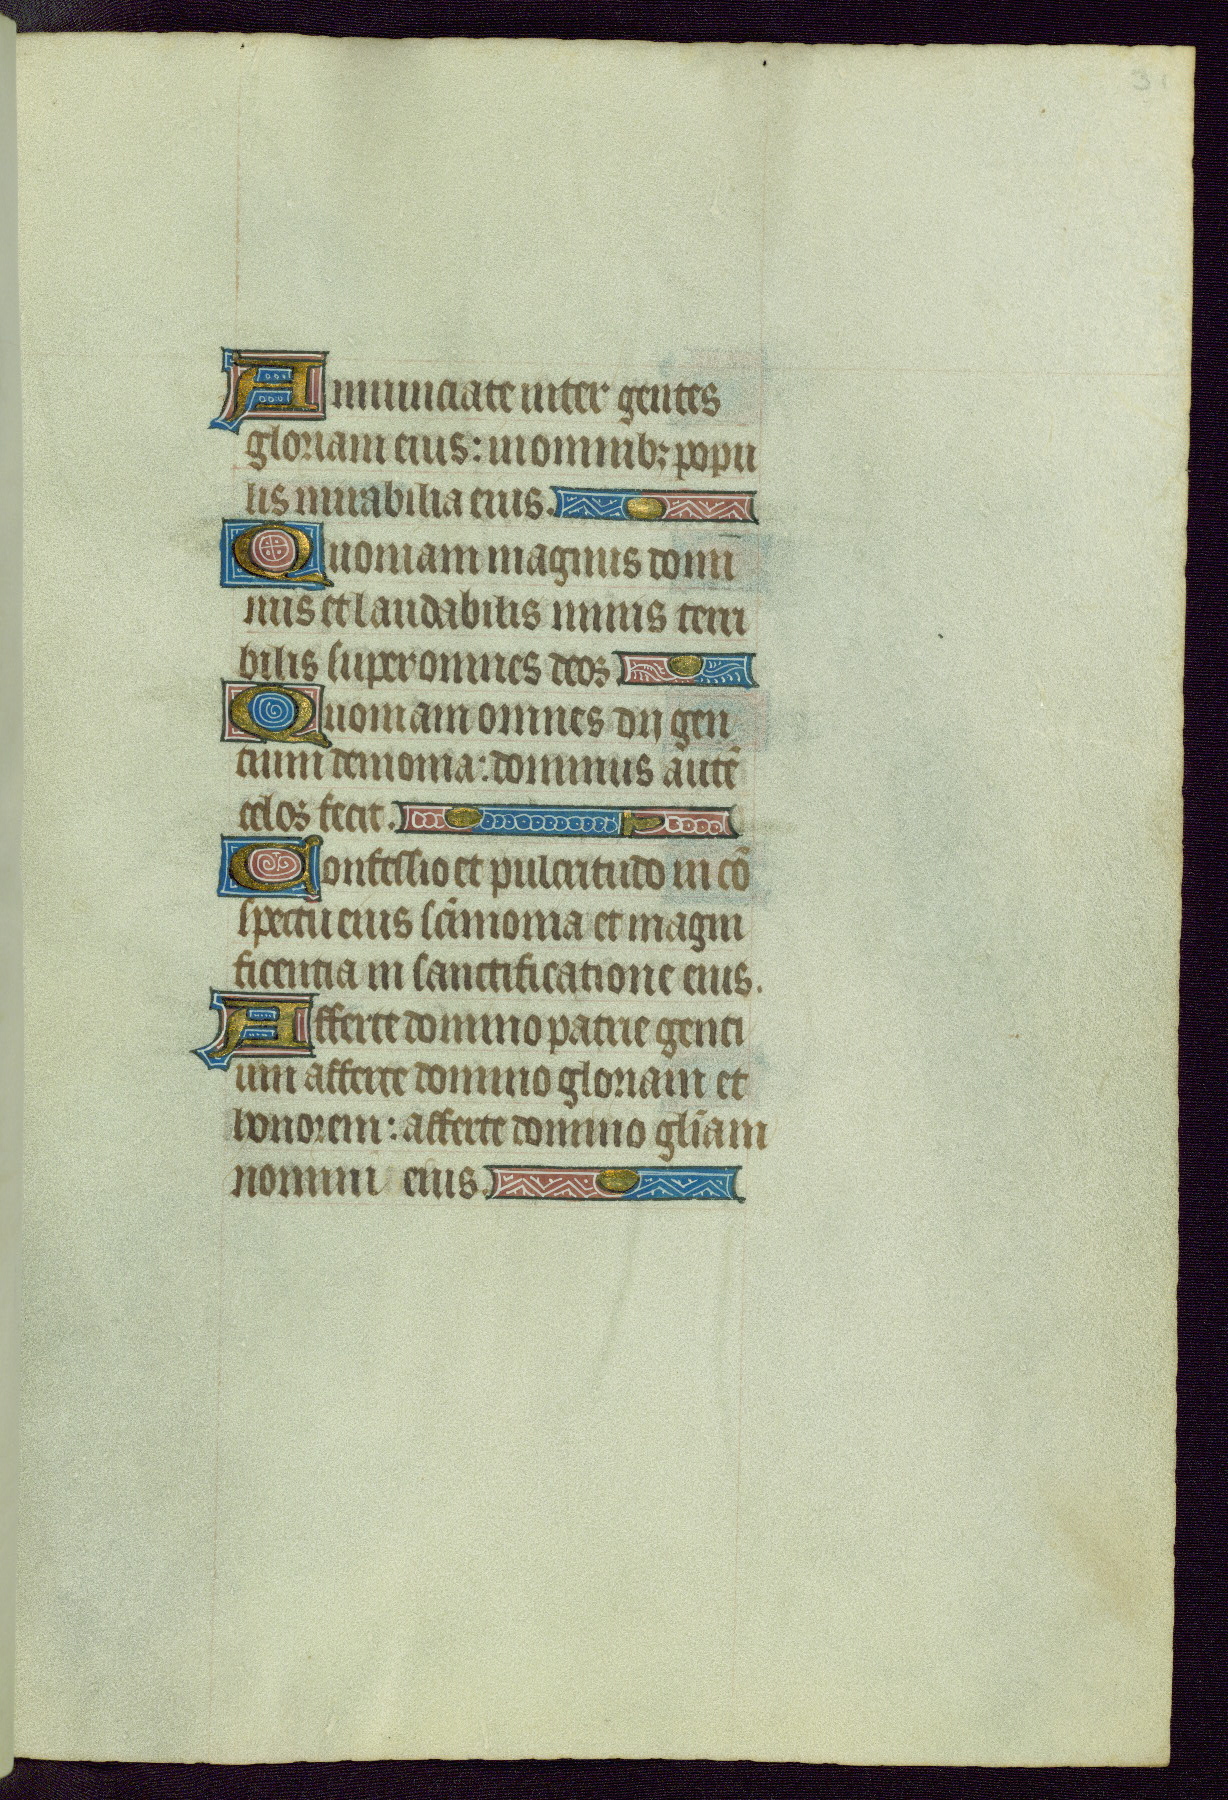 31
Annunciate inter gentes
gloriam eius: in omnibꝫ popu
lis mirabilia eius.
Quoniam magnus domi
nus et laudabilis nimis terri
bilis super omnes deos
Quoniam omnes dij gen
tium demonia: dominus autē
celos fecit.
Confessio et pulcritudo in cō
spectu eius sc̄imonia et magni
ficentia in sanctificatione eius.
Afferte domino patrie genti
um afferte domino gloriam et
honorem: afferte domino gl̄iam
nomini eius.